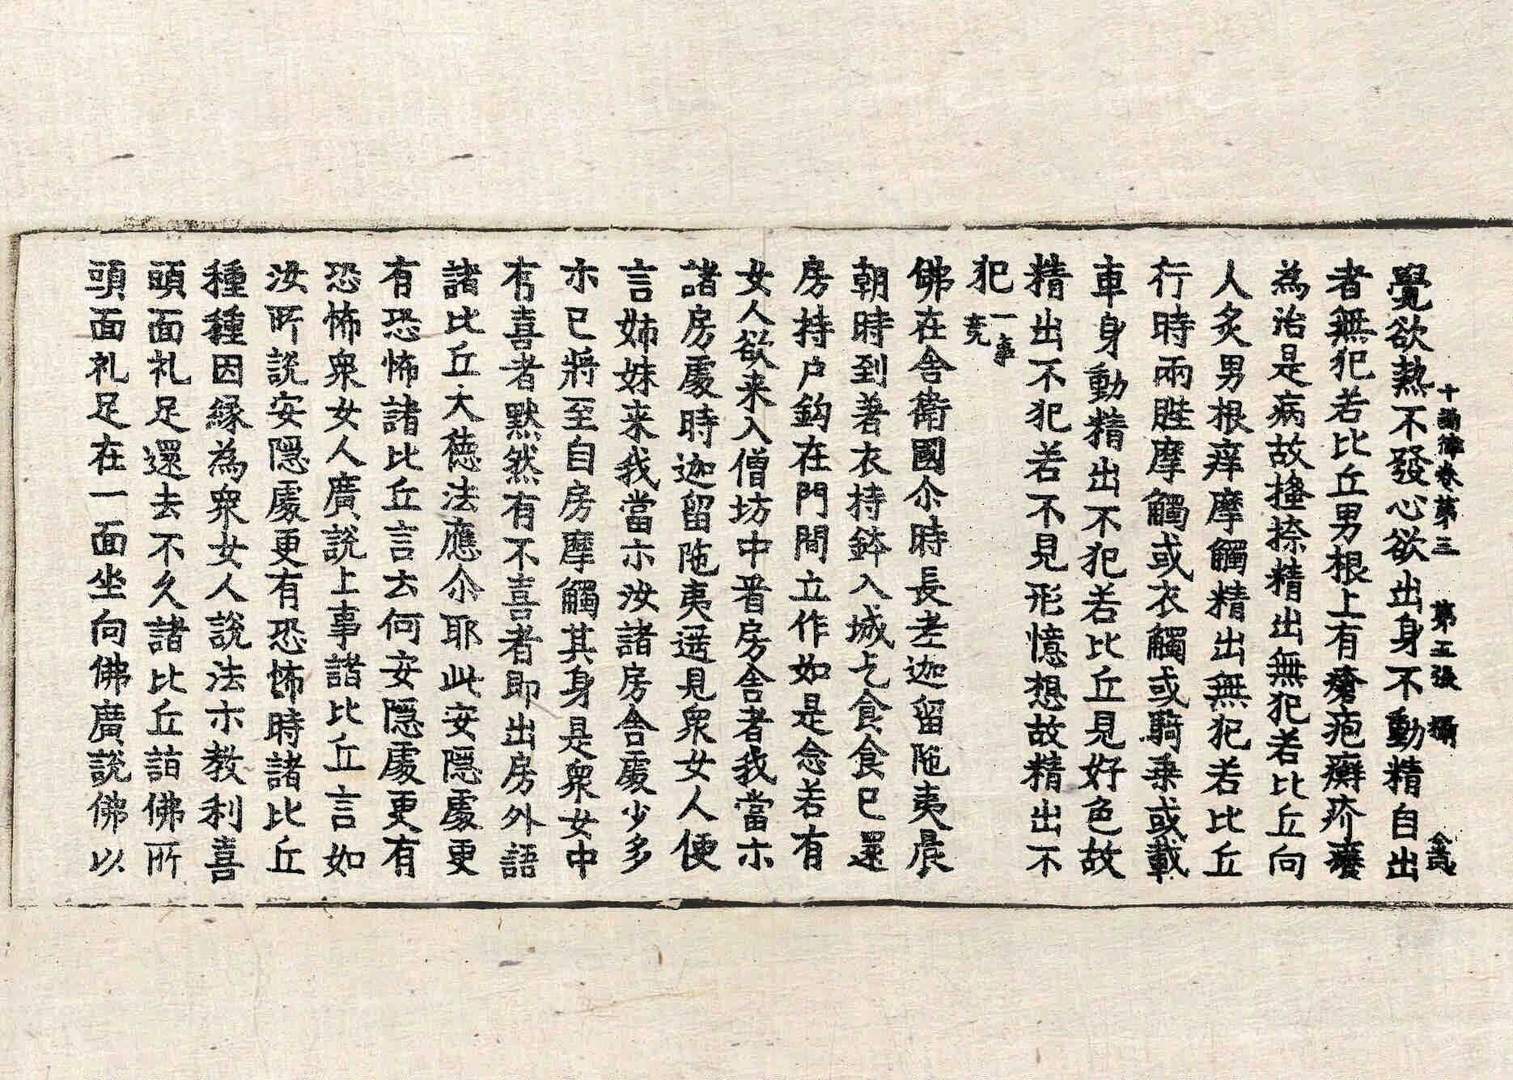 十誦律卷第三 第五張 攝
覺欲熱不發心欲出身不動精自出
者無犯若比丘男根上有瘡疱癬疥癢
為治是病故搔捺精出無犯若比丘向
人炙男根痒摩觸精出無犯若比丘
行時兩髀摩觸或衣觸或騎乗或載
車身動精出不犯若比丘見好色故
精出不犯若不見形憶想故精出不
犯一事竟
佛在舍衛國尒時長老迦留陁夷晨
朝時到著衣持鉢入城乞食食已還
房持户鈎在門間立作如是念若有
女人欲来入僧坊中看房舍者我當示
諸房處時迦留陁夷遥見衆女人便
言姉妹来我當示汝諸房舍處少多
示已將至自房摩觸其身是衆女中
有喜者黙然有不喜者即出房外語
諸比丘大徳法應尒耶此安隱處更
有恐怖諸比丘言云何安隱處更有
恐怖衆女人廣説上事諸比丘言如
汝所説安隱處更有恐怖時諸比丘
種種因縁為衆女人説法示教利喜
頭面礼足還去不久諸比丘詣佛所
頭面礼足在一面坐向佛廣説佛以